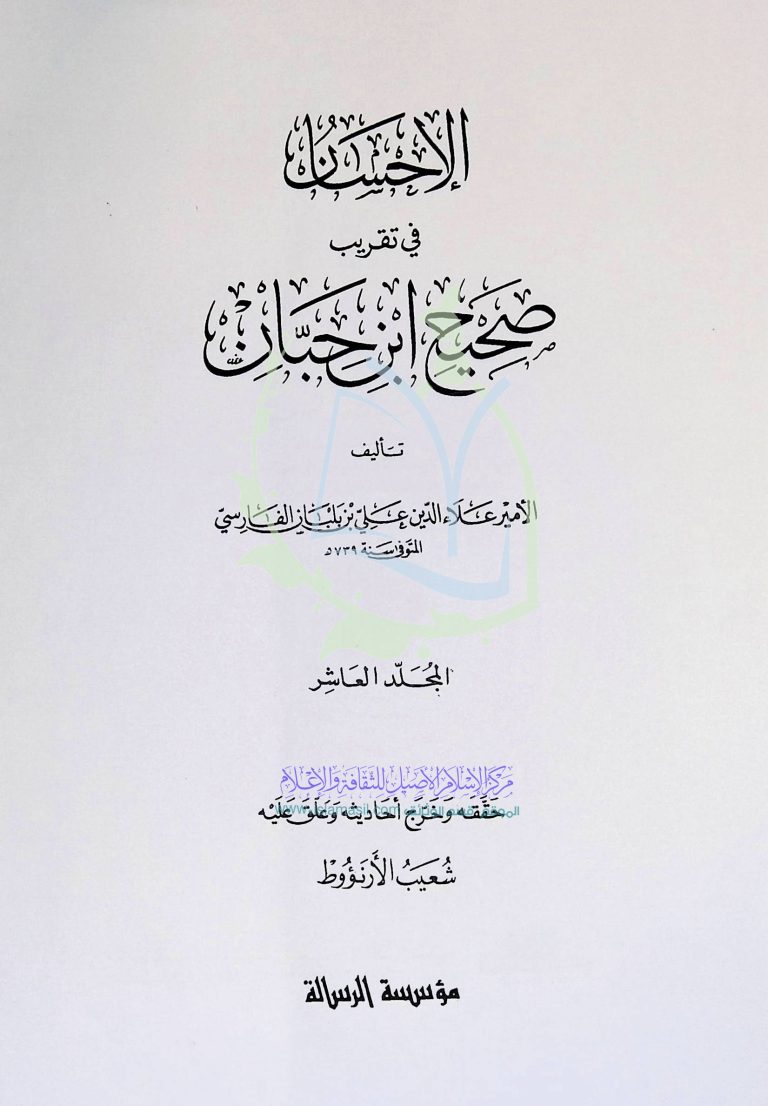 الإحْسَانُ
في تقريب
صَحِيحِ ابْنِ حِبَّانَ
تأليف
الأمير عَلَاء الدّين عَليّ بْن بَلبَان الفَارِسيّ
المتوفى سنة ٧٣٩ هـ
المُجَلّد العَاشِر
مركز الإسلام الأصيل للثقافة والإعلام
حَقَّقَه وَخَرَّج أحَاديثه وَعَلّقَ عَلَيْه
شُعَيبُ الأَرنَؤُوط
مؤسسة الرسالة